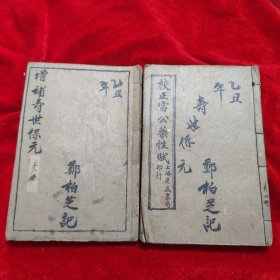 乙丑
年
增補壽世保元
鄭柏芝記
乙丑
年
壽世保元
鄭柏芝記
校正雷公藥性賦
上海
印行